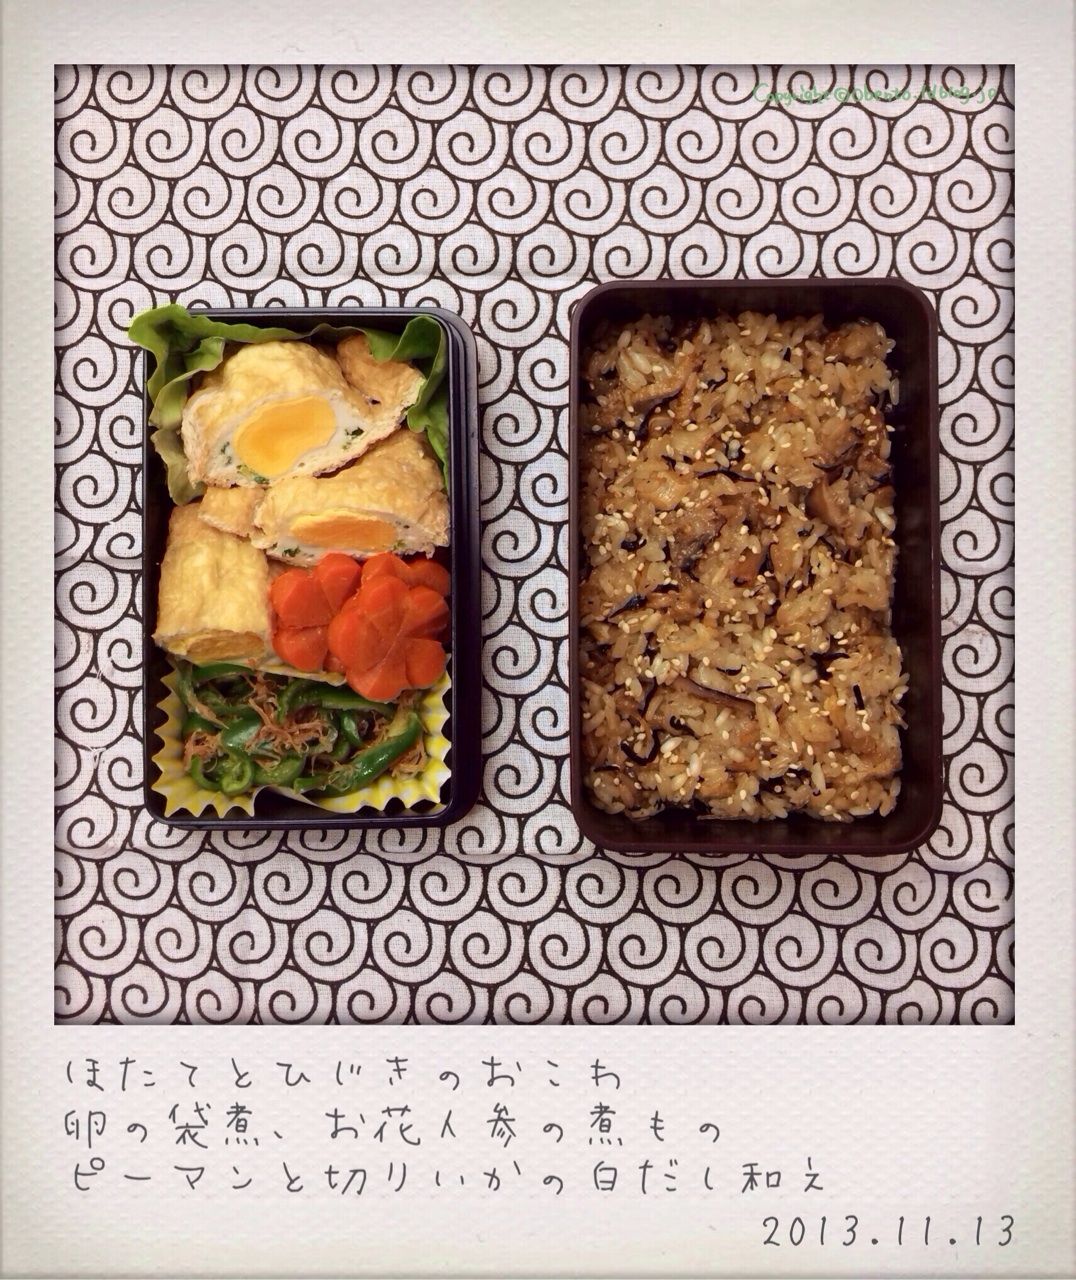 Copyright©Obento.ldblog.jp
ほたてとひじきのおこわ
卵の袋煮、お花人参の煮もの
ピーマンと切りいかの白だし和え
2013.11.13